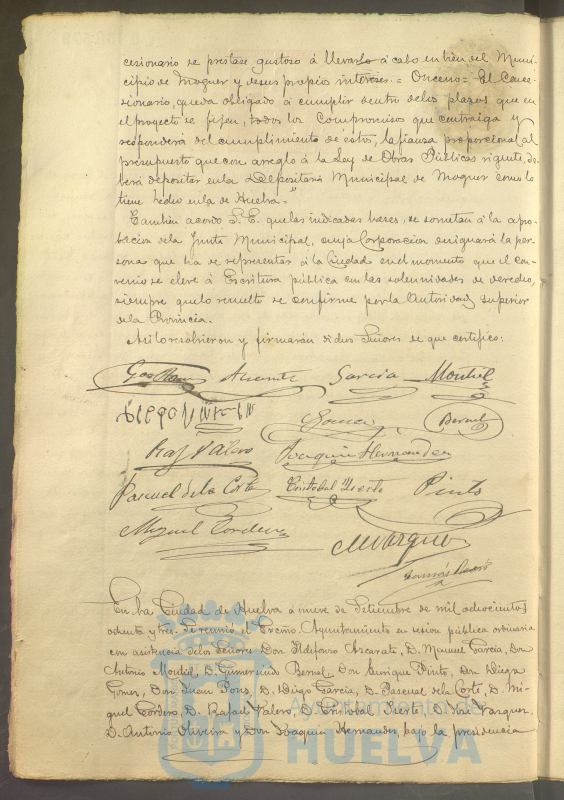 cesionario se prestase gustoso á llevarlo á cabo en bien del Muni-
cipio de Moguer y de sus propios intereses. = Onceno = El Conce-
sionario, queda obligado á cumplir dentro de los plazos que en
el proyecto se fijen, todos los compromisos que contraiga y
responderá del cumplimiento de éstos, la fianza proporcional al
presupuesto que con arreglo á la Ley de Obras Públicas vigente, de-
berá depositar en la Depositaria Municipal de Moguer como lo
tiene hecho en la de Huelva. "
Tambien acordó S. E. que las indicadas bases, se sometan á la apro-
bacion de la Junta Municipal, cuya Corporacion designará la per-
sona que ha de representar á la Ciudad en el momento que el con-
venio se eleve á Escritura pública con las solemnidades de derecho,
siempre que lo resuelto se confirme por la Autoridad superior
de la Provincia.
Asi lo resolvieron y firmarán dichos Señores de que certifico:
Garcia Montiel
Gomez Bernal
Raf Valero Joaquin Hernandez
Pascual de la Corte Cristobal Pinto
Miguel Cordero
M Vazquez
En la Ciudad de Huelva á nueve de Setiembre de mil ochocientos
ochenta y tres. Se reunió el Excmo. Ayuntamiento en sesion pública ordinaria
con asistencia de los Señores Don Ildefonso Azcarate, D. Manuel Garcia, Don
Antonio Montiel, D. Gumersindo Bernal, Don Enrique Pinto, Don Diego
Gomez, Don Juan Pons, D. Diego Garcia, D. Pascual de la Corte, D. Mi-
guel Cordero, D. Rafael Valero, D. Cristobal D. José Vazquez,
D. Antonio Oliveira y Don Joaquin Hernandez, bajo la presidencia
Ayuntamiento de
HUELVA